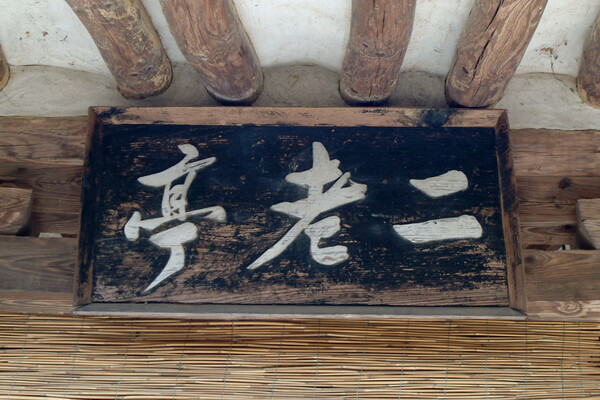 二老亭